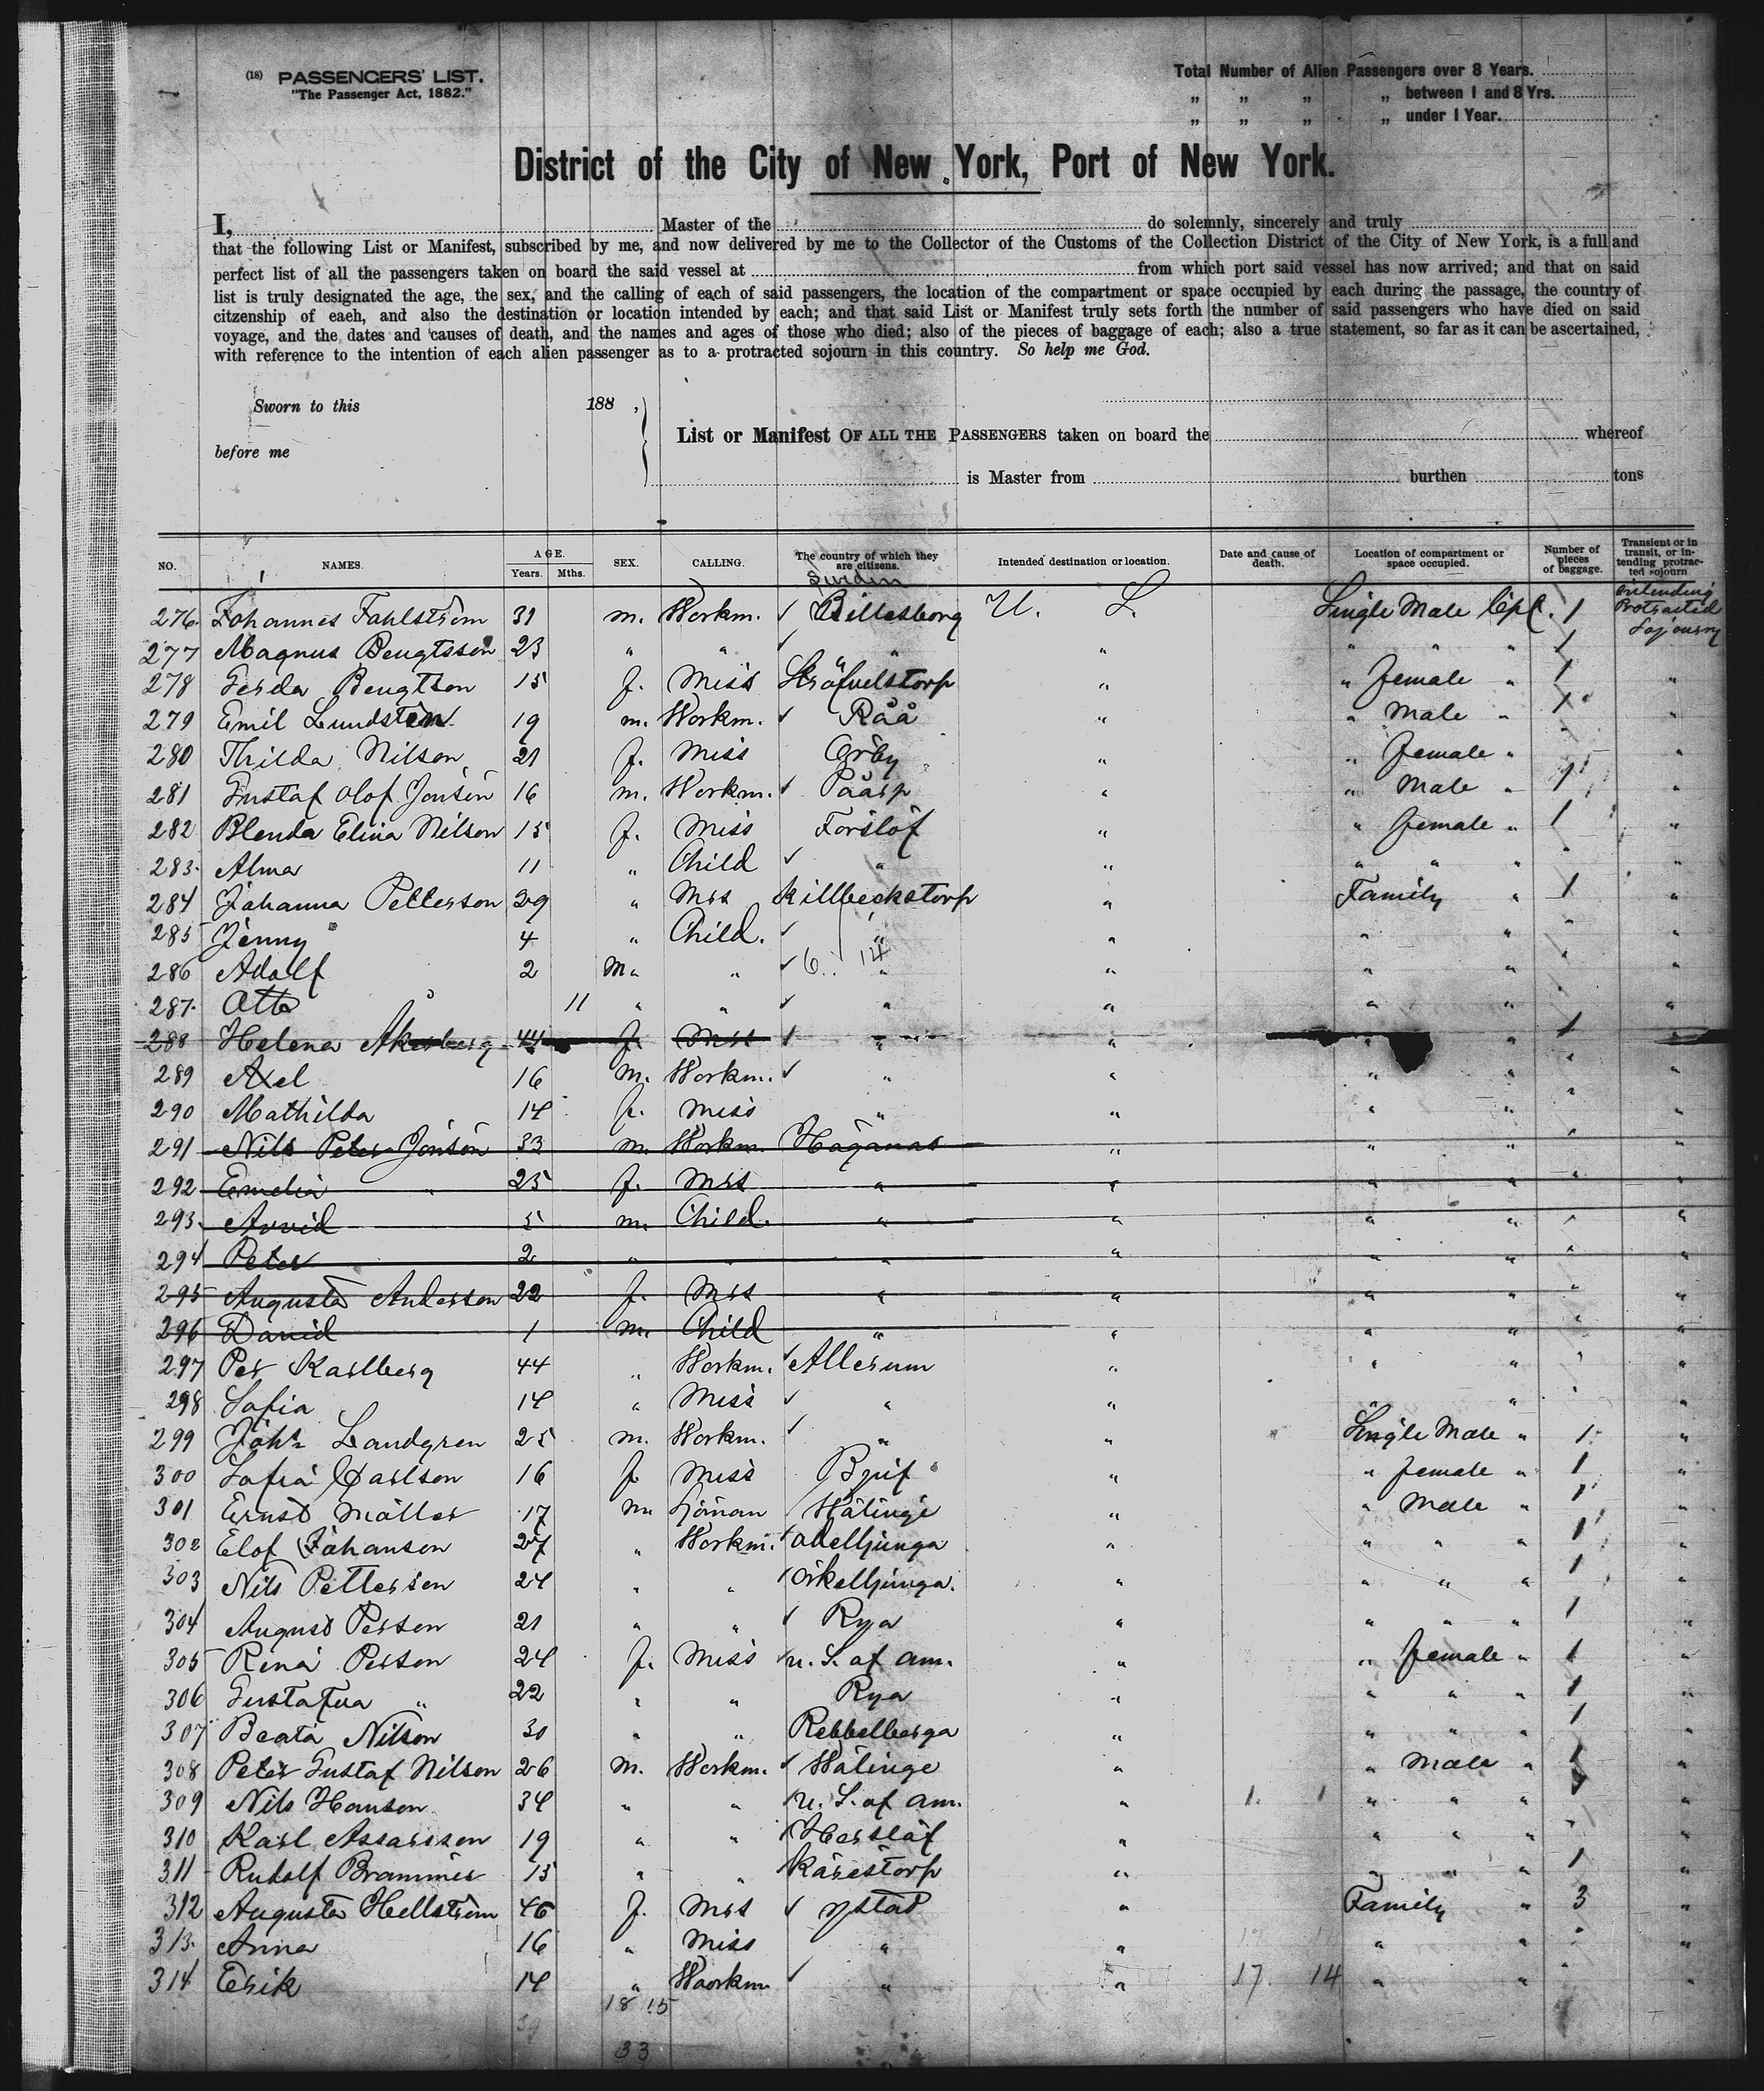 (18) PASSENGERS' LIST.
"The Passenger Act, 1882."
Total Number of Alien Passengers over 8 Years.
„ „ „ „ between 1 and 8 Yrs.
„ „ „ „ under 1 Year.
District of the City of New York, Port of New York.
I, Master of the do solemnly, sincerely and truly
that the following List or Manifest, subscribed by me, and now delivered by me to the Collector of the Customs of the Collection District of the City of New York, is a full and
perfect list of all the passengers taken on board the said vessel at from which port said vessel has now arrived; and that on said
list is truly designated the age, the sex, and the calling of each of said passengers, the location of the compartment or space occupied by each during the passage, the country of
citzenship of eaeh, and also the destination or location intended by each; and that said List or Manifest truly sets forth the number of said passengers who have died on said
voyage, and the dates and causes of death, and the names and ages of those who died; also of the pieces of baggage of each; also a true statement, so far as it can be ascertained,
with reference to the intention of each alien passenger as to a protracted sojourn in this country. So help me God.
Sworn to this 188 ,
before me
List or Manifest OF ALL THE PASSENGERS taken on board the whereof
is Master from burthen tons
NO. NAMES. AGE. Years. Mths. SEX. CALLING. The country of which they are citizens. Intended destination or location. Date and cause of death. Location of compartment or space occupied. Number of pieces of baggage. Transient or in transit, or intending protracted sojourn
Sweden
276 Johannes Fahlström 31 m. Workm. ✓ Billesborg U. S. Single Male Cpt. 1 intending Protracted Sojourn
277 Magnus Bengtsson 23 " " ✓ " " " " " " 1
278 Gerda Bengtson 15 f. Miss Ströfvelstorp " " female " 1 "
279 Emil Lundsten 19 m. Workm. ✓ Råå " " Male " 1 "
280 Thilda Nilson 21 f. Miss Örby " " female " "
281 Gustaf Olof Jonson 16 m. Workm. ✓ Påarp " " Male " 1 "
282 Blenda Elina Nilson 15 f. Miss Förslöf " " female " 1 "
283 Alma 11 " Child ✓ " " " " " " "
284 Johanna Petterson 29 " Mrs Killbeckstorp " Family " 1 "
285 Jenny 4 " Child. ✓ " " " " " "
286 Adolf 2 M. " ✓ 6. 14 " " " " " "
287 Otto 11 " " ✓ " " " " " "
288 Helena Akerberg 44 f. Mrs ✓ " " " " 1 "
289 Axel 16 m. Workm. ✓ " " " " " "
290 Mathilda 14 f. Miss " " " " " "
291 Nils Peter Jonson 33 m. Workm. Höganas " " " " "
292 Emelia " 25 f. Mrs " " " " " "
293 Arvid 5 m. Child. " " " " " "
294 Peter 2 " " " " " " " "
295 Augusta Anderson 22 f. Mrs " " " " " "
296 David 1 m. Child " " " " " "
297 Per Karlberg 44 " Workm. ✓ Allerum " " " " "
298 Sofia 14 " Miss ✓ " " " " " "
299 Joh. Landgren 25 m. Workm. ✓ " " Single Male " 1 "
300 Sofia Carlson 16 f Miss Bjuf " " female " 1 "
301 Ernst Möller 17 m Sjöman Hälinge " " Male " 1 "
302 Elof Johanson 27 " Workm. " " " " 1 "
303 Nils Petterson 24 " " Örkelljunga. " " " " 1 "
304 August Person 21 " " ✓ Rya " " " " 1 "
305 Rina Person 24 f. Miss ✓ U. S. of am. " " female " 1 "
306 Gustafva " 22 " " Rya " " " " 1 "
307 Beata Nilson 30 " " Rebbelberga " " " " 1 "
308 Peter Gustaf Nilson 26 m. Workm. ✓ Hälinge " " Male " 1 "
309 Nils Hanson 34 " " U. S. of am. " 1. 1 " " " 1 "
310 Karl Assarsson 19 " " Herslöf " " " " "
311 Rudolf Brammer 15 " " Kärestorp " " " " 1 "
312 Augusta Hellström 46 f. Mrs ✓ Ystad " Family " 3 "
313 Anna 16 " Miss " " " " " "
314 Erik 14 " Woorkm ✓ " " 17. 14 " " " "
18 15
39
33